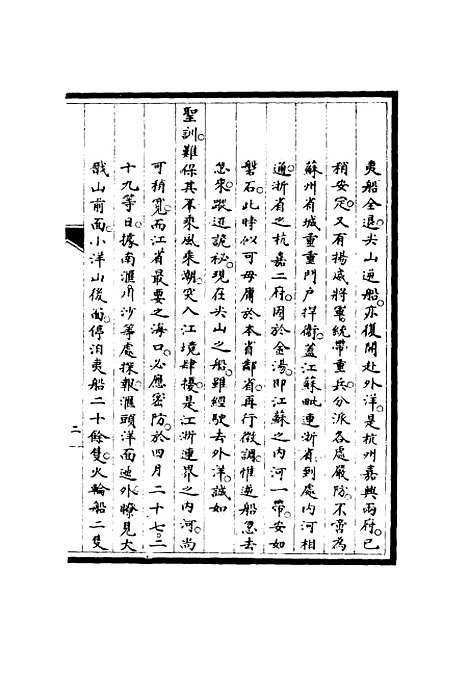 夷船全退。尖山逆船。亦復開赴外洋。是杭州嘉興兩府。已
稍安定。又有揚威將軍。統帶重兵。分派各處嚴防。不啻為
蘇州省城重重門戶捍衛。蓋江蘇毗連浙省。到處內河相
通。浙省之杭嘉二府。固於金湯。即江蘇之內河一帶。安如
磐石。此時似可毋庸於本省鄰省。再行徵調。惟逆船忽去
忽來。蹤跡詭秘。現在尖山之船。雖經駛去外洋。誠如
聖訓。難保其不乘風乘潮。突入江境肆擾。是江浙連界之內河。尚
可稍寬。而江省最要之海口。必應密防。於四月二十七。二
十九等日。據南滙川沙等處探報。滙頭洋面迤外。瞭見大
戢山前面。小洋山後面。停泊夷船二十餘隻。火輪船二隻
二